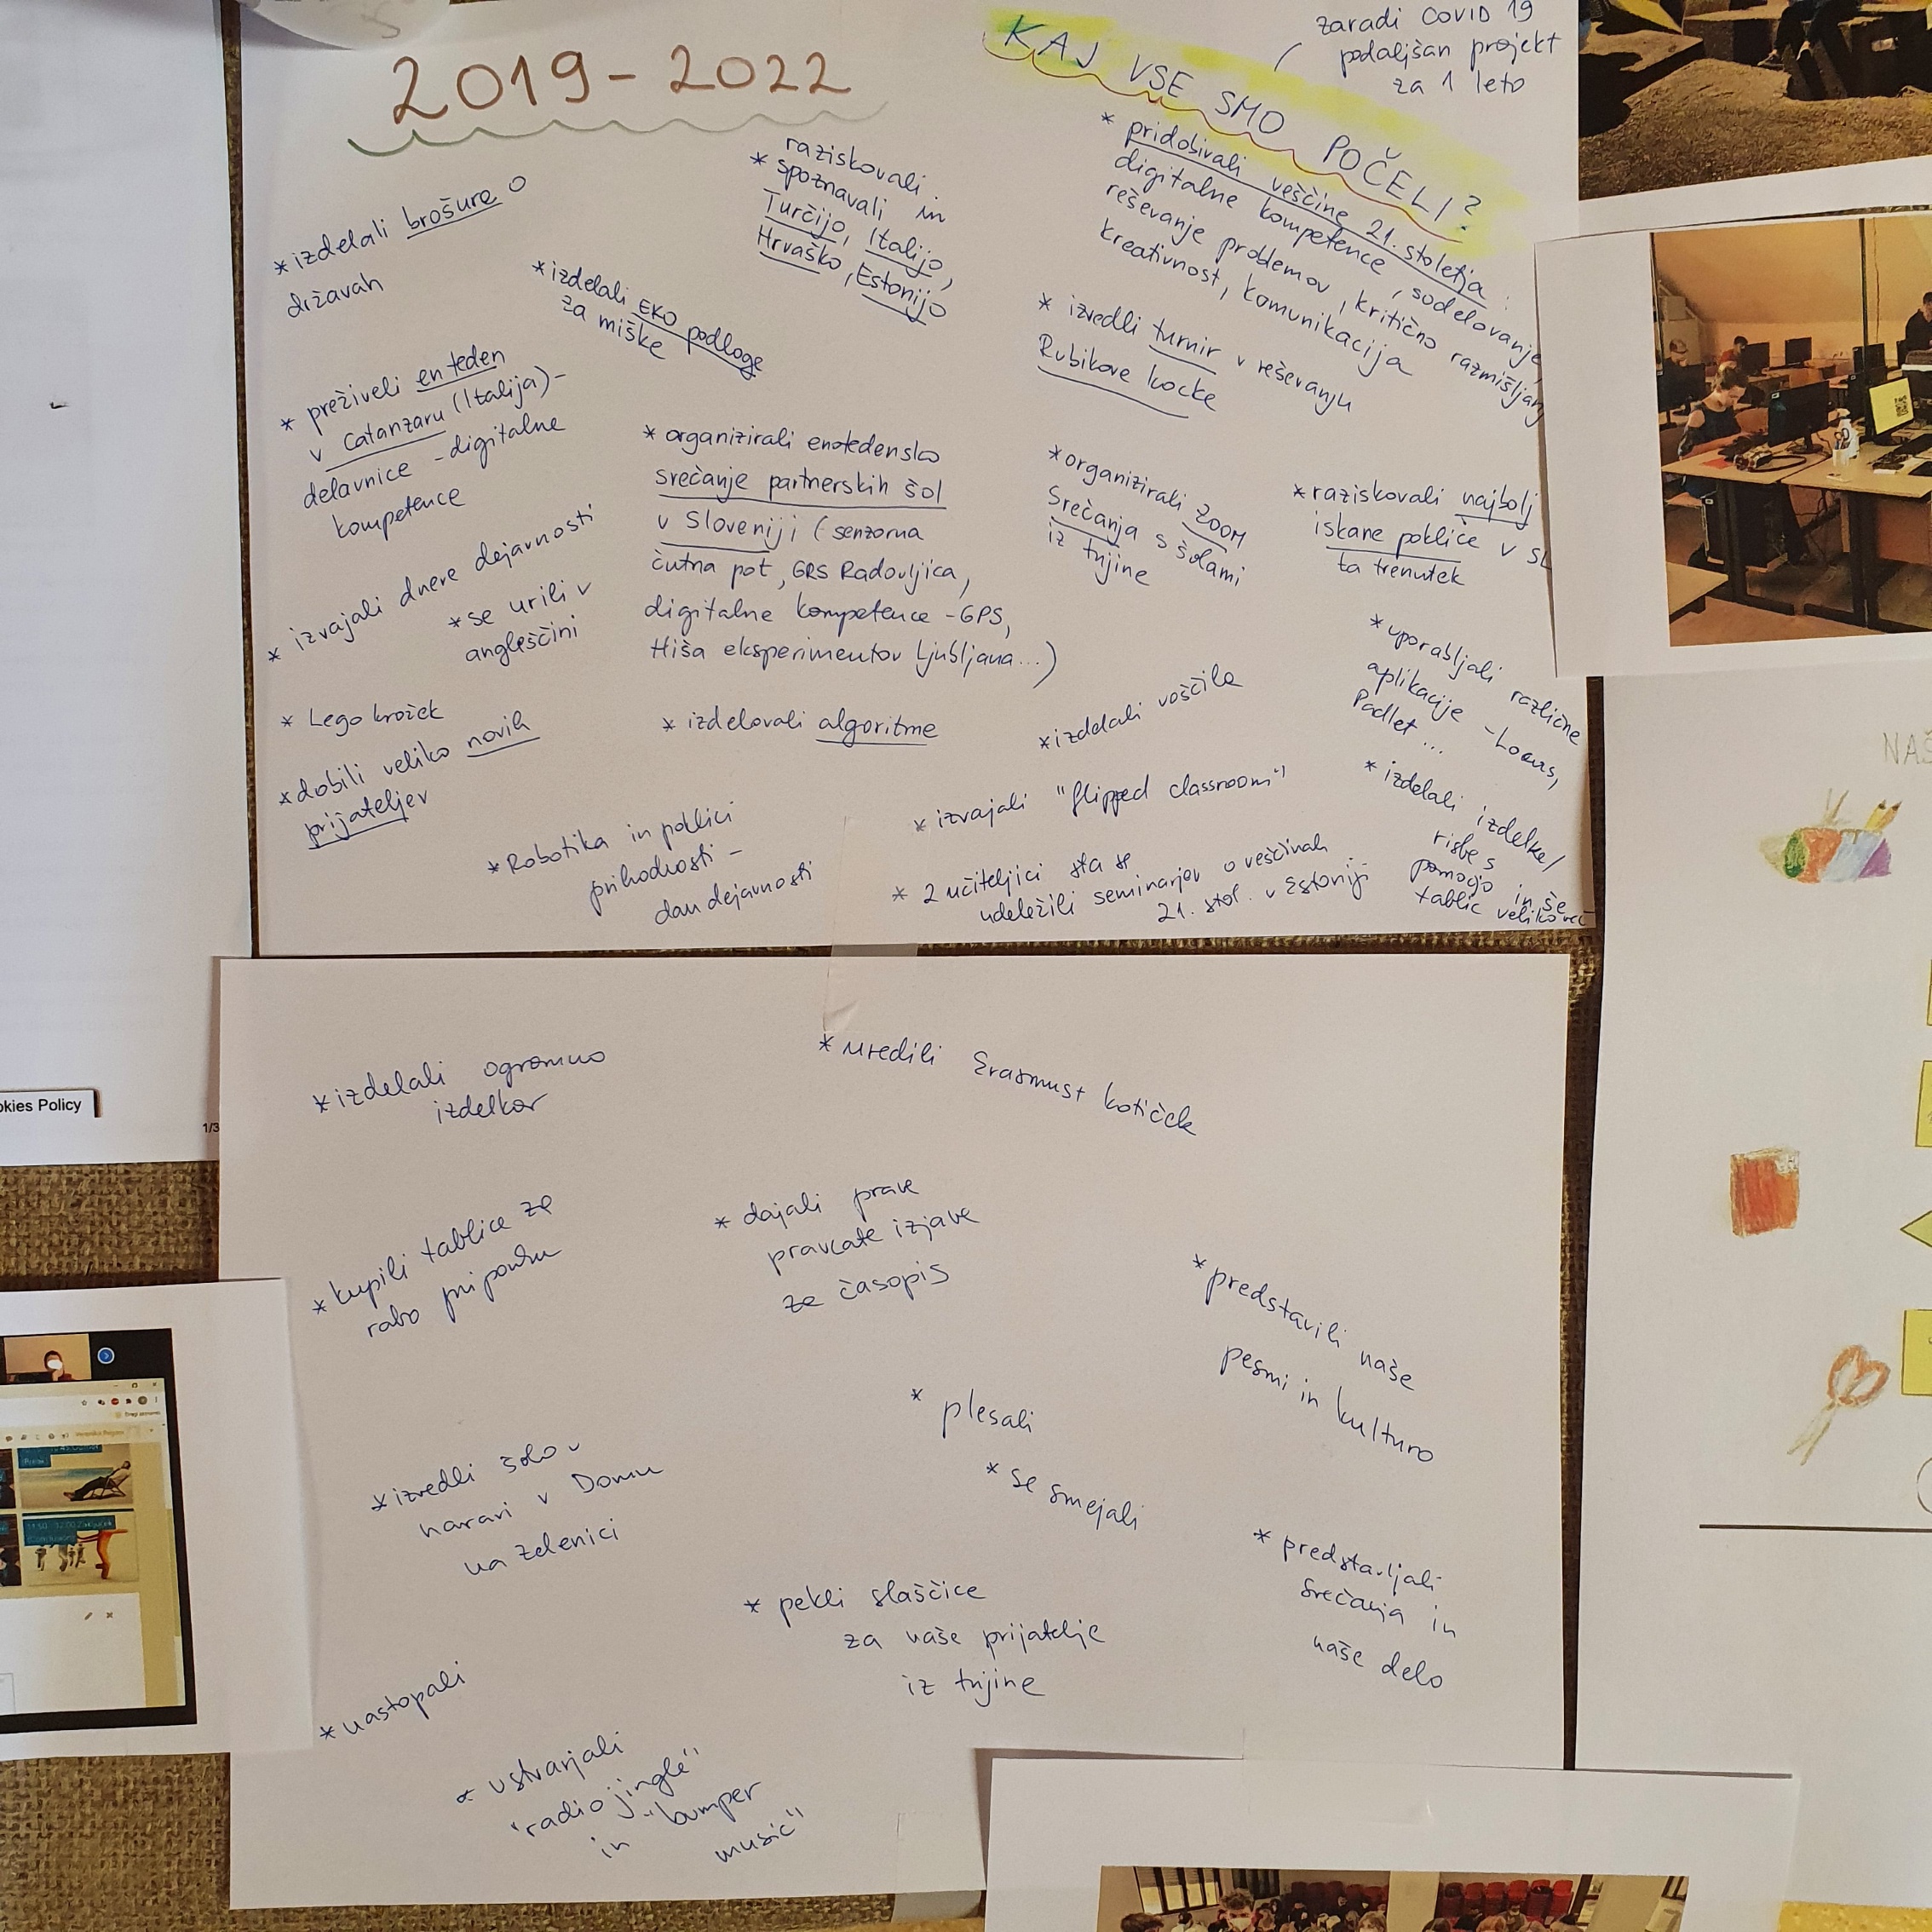 2019 - 2022
KAJ VSE SMO POČELI?
zaradi COVID 19
podaljšan projekt
za 1 leto
* izdelali brošure o
državah
* izdelali EKO podloge
za miške
raziskovali in
* spoznavali
Turčijo, Italijo,
Hrvaško, Estonijo
* pridobivali veščine 21. stoletja:
digitalne kompetence, sodelovanje,
reševanje problemov, kritično razmišljanj
kreativnost, komunikacija
* izvedli turnir v reševanju
Rubikove kocke
* preživeli en teden
v Catanzaru (Italija) -
delavnice - digitalne
kompetence
* organizirali enotedensko
srečanje partnerskih šol
v Sloveniji (senzorna
čutna pot, GRS Radovljica,
digitalne kompetence - GPS,
Hiša eksperimentov Ljubljana...)
* organizirali ZOOM
Srečanja s šolami
iz tujine
* raziskovali najbolj
iskane poklice v SL
ta trenutek
* izvajali dneve dejavnosti
* se urili v
angleščini
* uporabljali različne
aplikacije - Loours,
Padlet ...
* Lego krožek
* izdelovali algoritme
* izdelali voščila
* dobili veliko novih
prijateljev
* izvajali "flipped classroom"
* izdelali izdelke/
risbe s
pomočjo
tablic
in še
veliko več
* Robotika in poklici
prihodnosti -
dan dejavnosti
* 2 učiteljici sta se
udeležili seminarjev o veščinah
21. stol. v Estoniji
* izdelali ogromno
izdelkov
* uredili Erasmus+ kotiček
* kupili tablice za
rabo pri pouku
* dajali prave
pravcate izjave
za časopis
* predstavili naše
pesmi in kulturo
* plesali
* se smejali
* izvedli šolo v
naravi v Domu
na Zelenici
* predstavljali
srečanja in
naše delo
* pekli slaščice
za naše prijatelje
iz tujine
* nastopali
* ustvarjali
"radio jingle"
in "bumper
music"
okies Policy
1/3
NAŠ